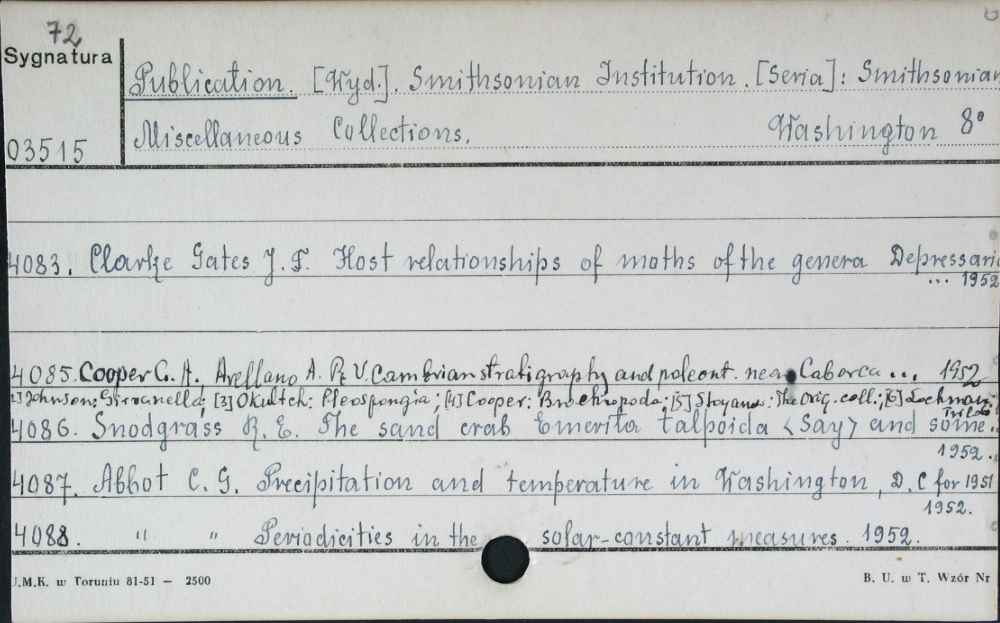 72
Sygnatura
03515
Publication. [Wyd.]. Smithsonian Institution. [Seria]: Smithsonian
Miscellaneous Collections. Washington 8°
4083. Clarke Gates J. F. Host relationships of moths of the genera Depressaria
... 1952
4085. Cooper G. A., Arellano A. R. V. Cambrian stratigraphy and paleont. near Caborca ... 1952
Johnson: Girvanella; [3] Okulitch: Pleospongia; [4] Cooper: Brachiopoda; [5] Stoyanow: The Orig. coll.; [6] Lochman: Trilob.
4086. Snodgrass R. E. The sand crab Emerita talpoida <Say> and some..
1952.
4087. Abbot C. G. Precipitation and temperature in Washington, D. C for 1951
1952.
4088. " " Periodicities in the solar-constant measures. 1952.
U.M.K. w Toruniu 81-51 — 2500
B. U. w T. Wzór Nr